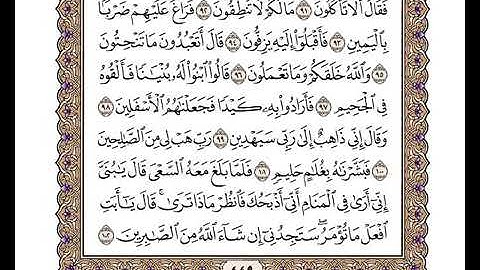 فَقَالَ أَلَا تَأْكُلُونَ ٩١ مَا لَكُمْ لَا تَنطِقُونَ ٩٢ فَرَاغَ عَلَيْهِمْ ضَرْبًۢا
بِٱلْيَمِينِ ٩٣ فَأَقْبَلُوٓا۟ إِلَيْهِ يَزِفُّونَ ٩٤ قَالَ أَتَعْبُدُونَ مَا تَنْحِتُونَ
٩٥ وَٱللَّهُ خَلَقَكُمْ وَمَا تَعْمَلُونَ ٩٦ قَالُوا۟ ٱبْنُوا۟ لَهُۥ بُنْيَٰنًا فَأَلْقُوهُ
فِى ٱلْجَحِيمِ ٩٧ فَأَرَادُوا۟ بِهِۦ كَيْدًا فَجَعَلْنَٰهُمُ ٱلْأَسْفَلِينَ ٩٨
وَقَالَ إِنِّى ذَاهِبٌ إِلَىٰ رَبِّى سَيَهْدِينِ ٩٩ رَبِّ هَبْ لِى مِنَ ٱلصَّٰلِحِينَ
١٠٠ فَبَشَّرْنَٰهُ بِغُلَٰمٍ حَلِيمٍ ١٠١ فَلَمَّا بَلَغَ مَعَهُ ٱلسَّعْىَ قَالَ يَٰبُنَىَّ
إِنِّىٓ أَرَىٰ فِى ٱلْمَنَامِ أَنِّىٓ أَذْبَحُكَ فَٱنظُرْ مَاذَا تَرَىٰ ۚ قَالَ يَٰٓأَبَتِ
ٱفْعَلْ مَا تُؤْمَرُ ۖ سَتَجِدُنِىٓ إِن شَآءَ ٱللَّهُ مِنَ ٱلصَّٰبِرِينَ ١٠٢
٤٤٩